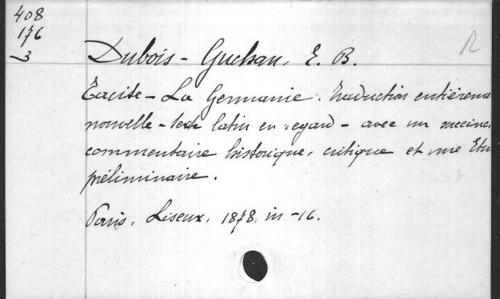 408
176
3
R
Dubois-Guchan, E. B.
Tacite - La Germanie. Traduction entièreme
nouvelle - texte latin en regard - avec un succinc
commentaire historique, critique et une Etu
préliminaire.
Paris, Liseux, 1878. in-16.